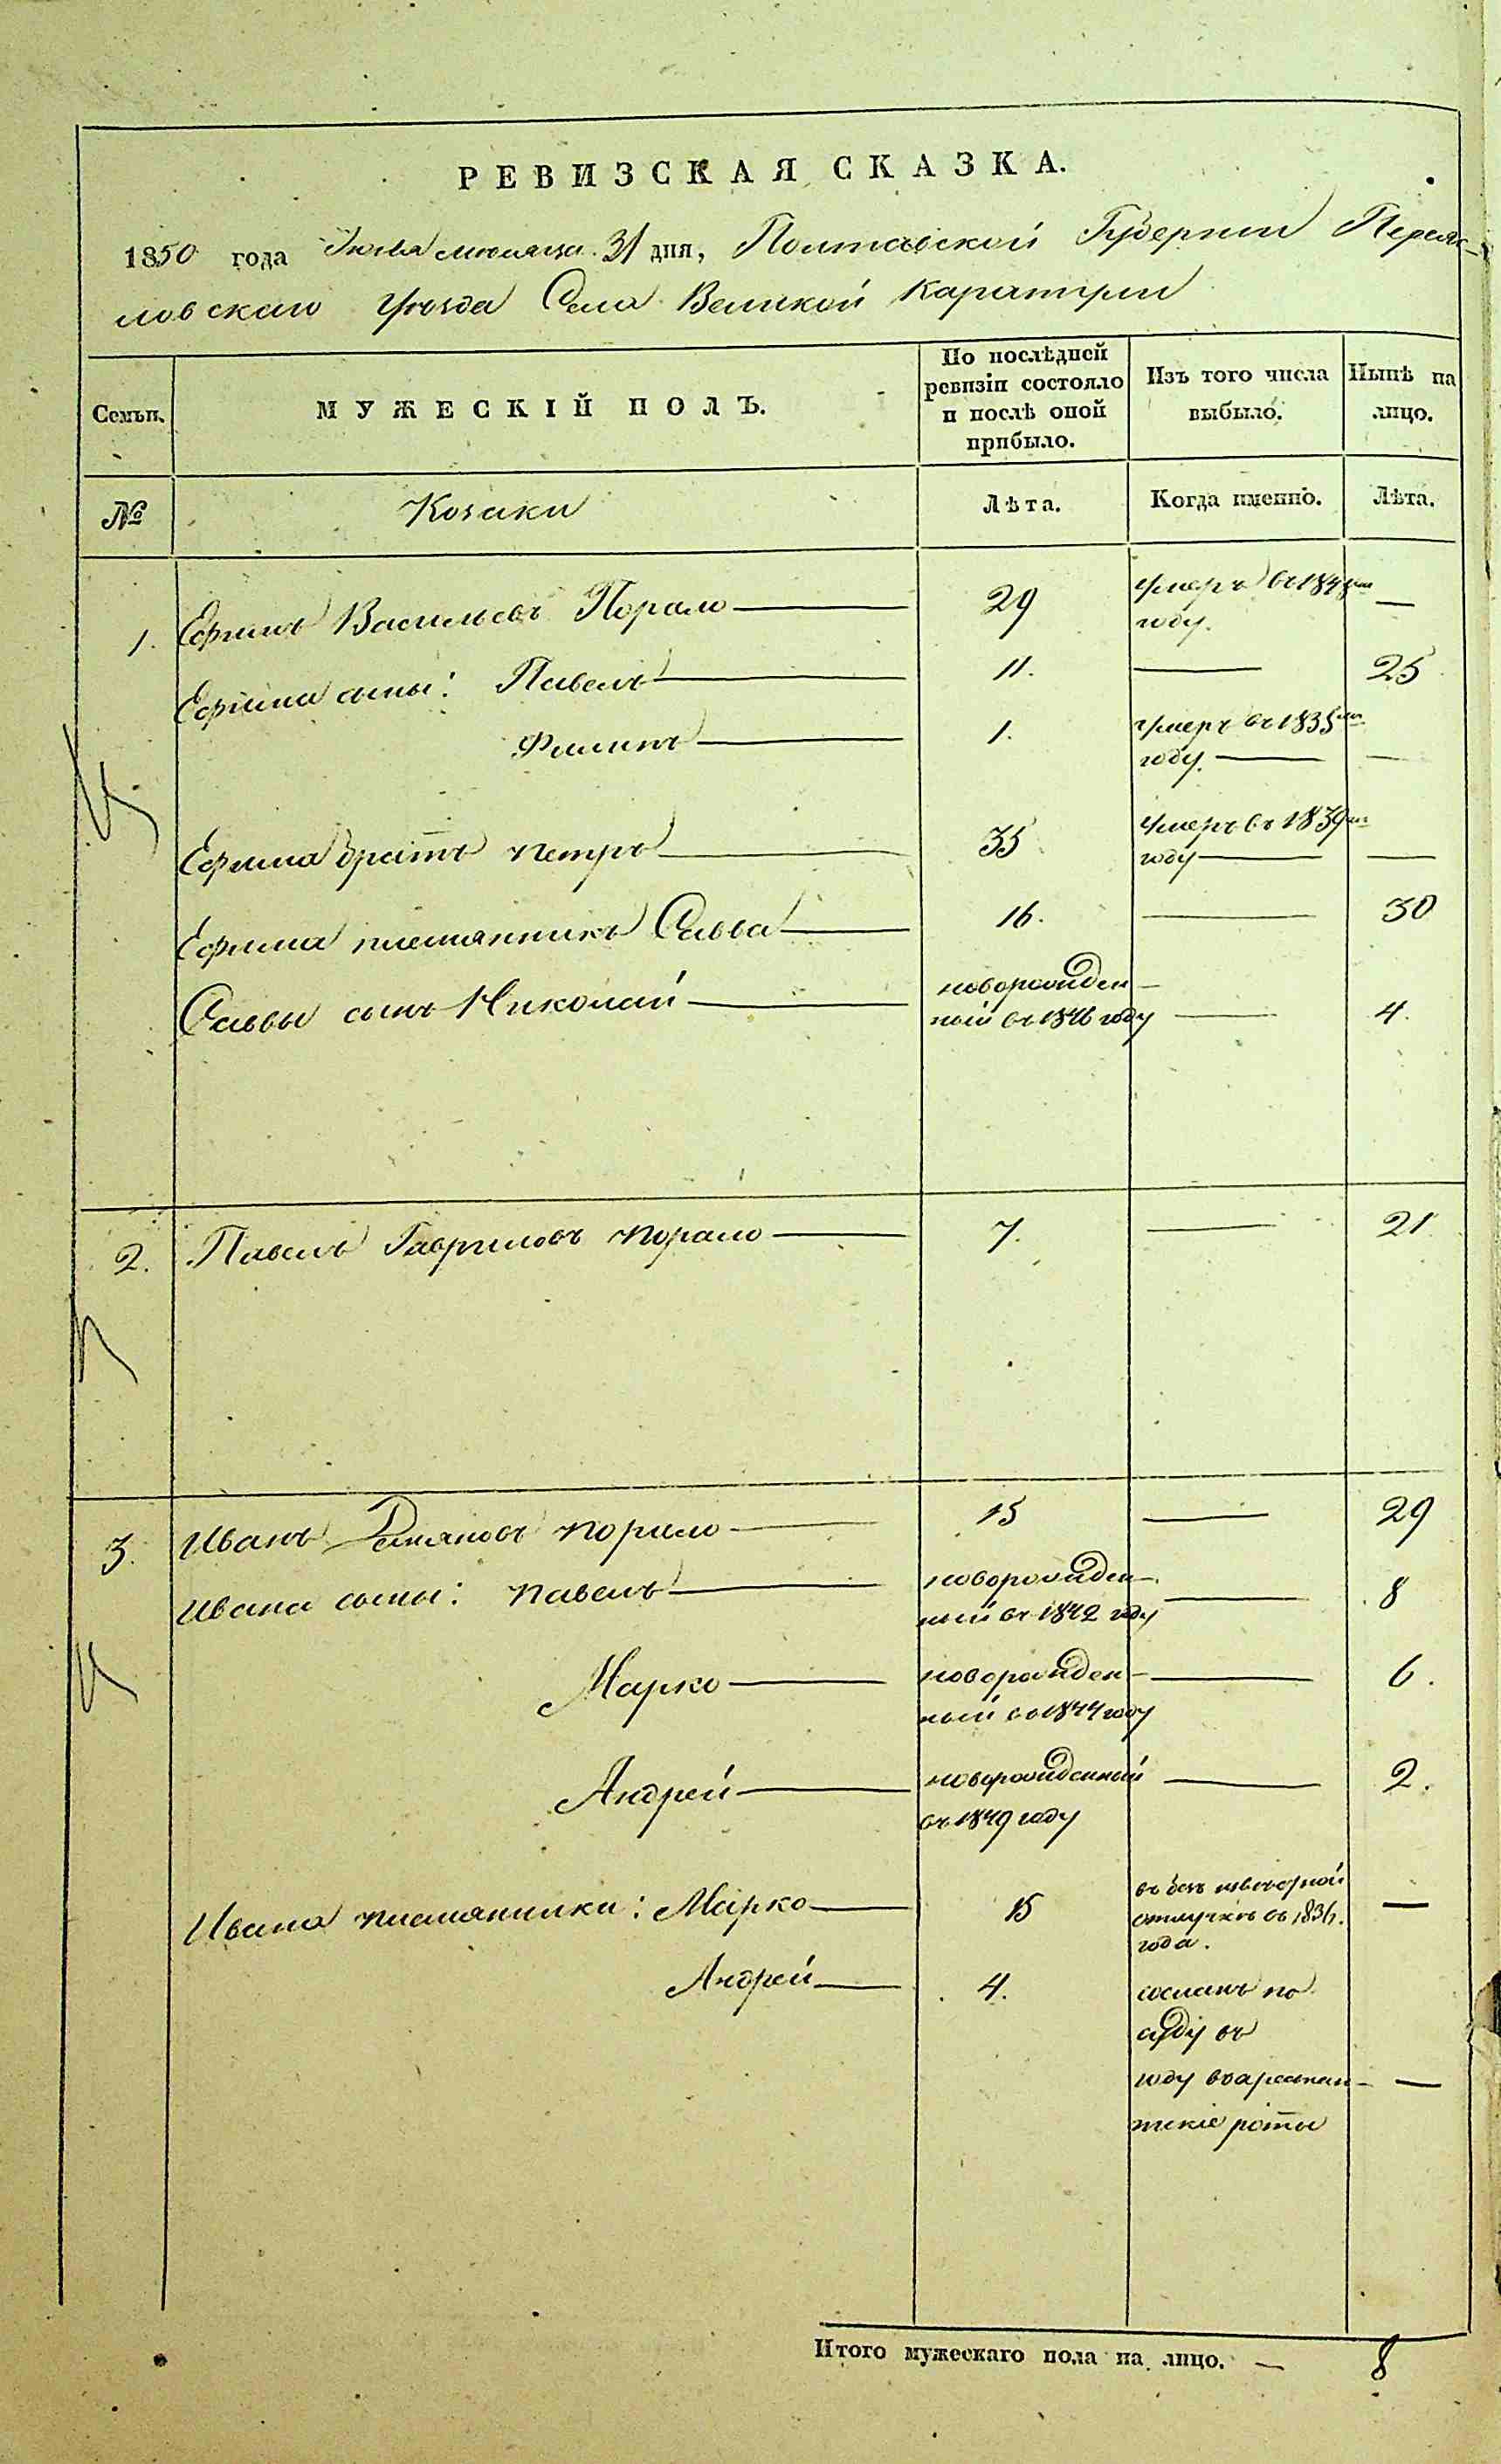 РЕВИЗСКАЯ СКАЗКА.
1850 года месяца 31 дня, Полтавской Губернии Переяс-
ловскаго Уезда Села Великой Каратули
Семьи.
МУЖЕСКІЙ ПОЛЪ.
По послѣдней
ревизіи состояло
и послѣ оной
прибыло.
Изъ того числа
выбыло.
Нынѣ на
лицо.
№
Козаки
Лѣта.
Когда именно.
Лѣта.
1. Ефимъ Васильевъ Порало 29 умеръ въ 184 —
году.
Ефима сыны: Павелъ 11. — 25
Филипъ 1. умеръ въ 1835мъ
году. — —
Ефима братъ Петръ 35 умеръ въ 1839мъ
году — —
Ефима племянникъ Савва 16. — 30
Саввы сынъ Николай новорожден-
ный въ 1846 году — 4.
2. Павелъ Гавриловъ Порало 7. — 21
3. Иванъ Демяновъ Порало 15 — 29
Ивана сыны: Павелъ новорожден-
ный въ 1842 году — 8
Марко новорожден-
ный въ 1844 году — 6.
Андрей новорожденный
въ 1849 году — 2.
Ивана племянники: Марко 15 въ безъизвестной
отлучкѣ съ 1836.
года. —
Андрей 4. сосланъ по
суду въ
году въ арестан-
тские роты —
Итого мужескаго пола на лицо. — 8